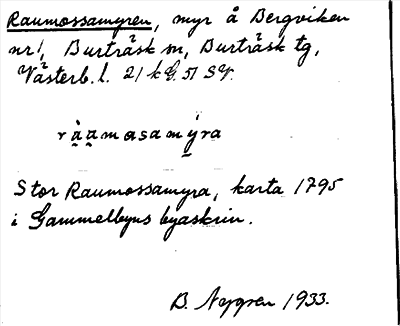 Raumossamyren, myr å Bergviken
nr 1, Burträsk sn, Burträsk tg,
Västerb. l. 21 k G. 51 SV.
ràamasamýra
Stor Raumossamyra, karta 1795
i Gammelbyns byaskrin.
B. Nygren 1933.